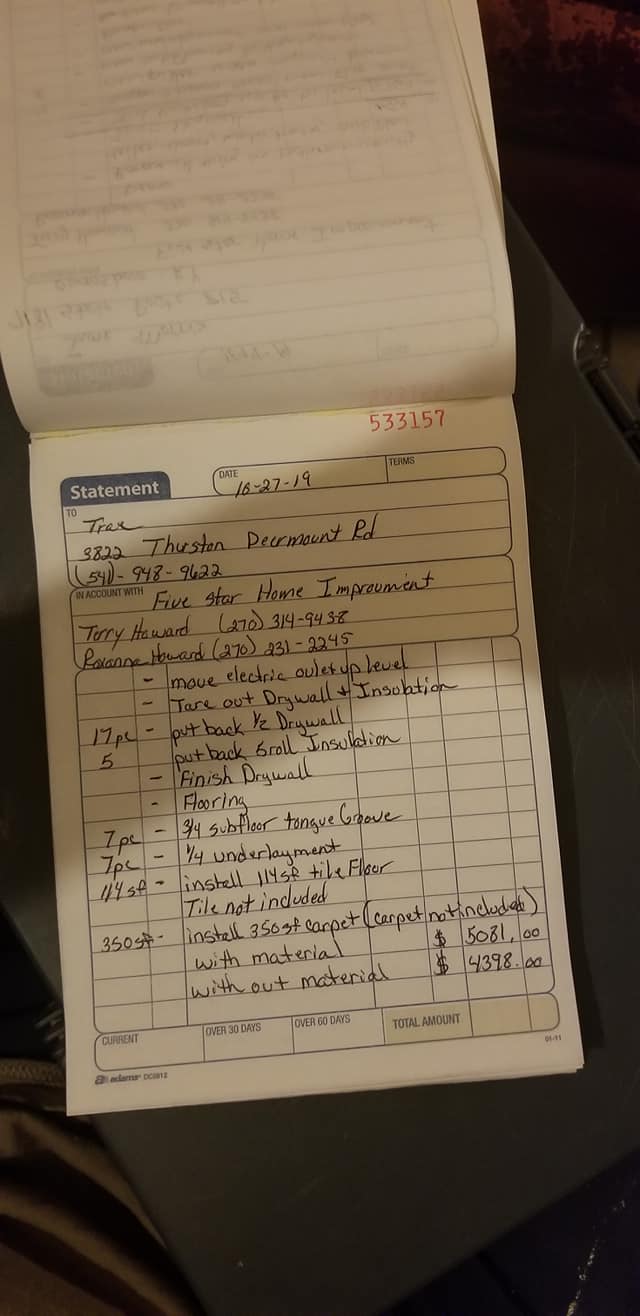 533157
Statement
DATE
10-27-19
TERMS
TO
Trae
3822 Thurston Deermount Rd
(541)-948-9622
IN ACCOUNT WITH Five Star Home Improument
Terry Howard (270) 314-9438
Roxanne Howard (270) 231-2245
- move electric oulet up level
- Tare out Drywall + Insulation
17pc - put back 1/2 Drywall
5 put back 5roll Insulation
- Finish Drywall
- Flooring
7pc - 3/4 subfloor tongue Groove
7pc - 1/4 underlayment
114 sf - install 114 sf tile Floor
Tile not included
350 sf - install 350 sf carpet (carpet not included)
with material $ 5081.00
with out material $ 4398.00
CURRENT
OVER 30 DAYS
OVER 60 DAYS
TOTAL AMOUNT
adams DC5812
01-11